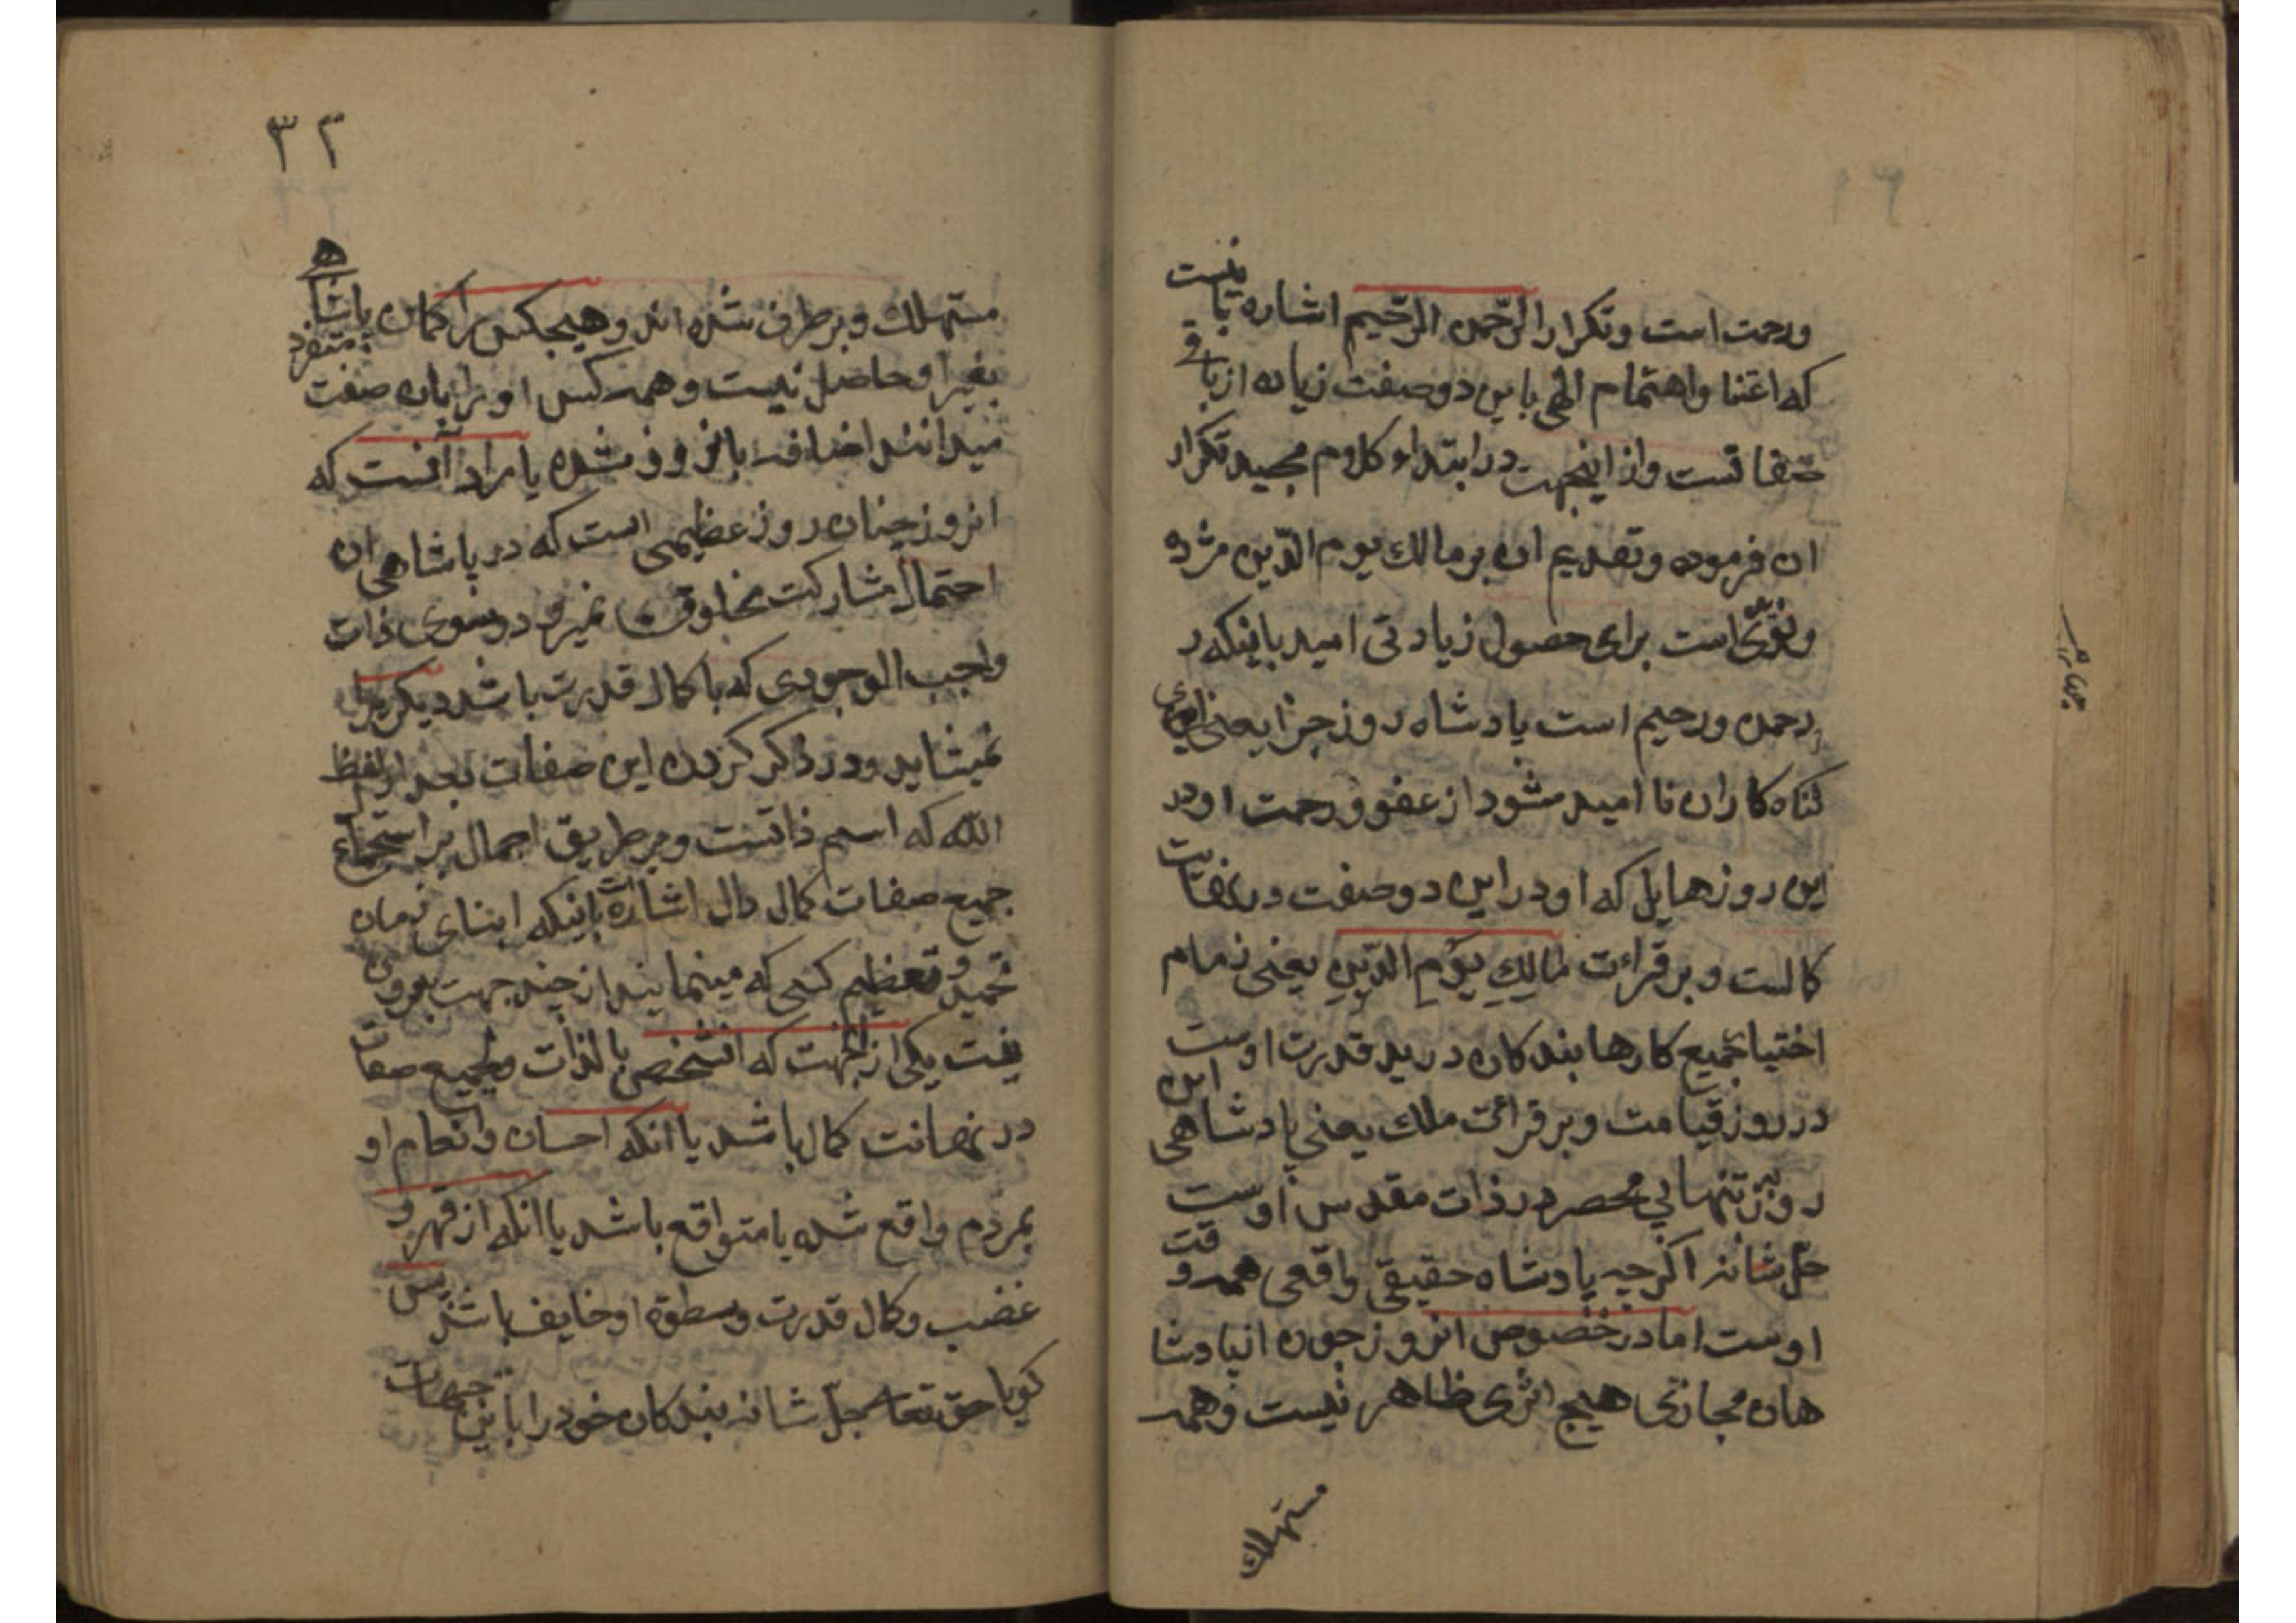 ورحمت است وتکرار الرّحمن الرّحیم اشاره باینست
که اعتنا واهتمام الهی باین دوصفت زیاده از باقی
صفاتست واز اینجهت درابتداء کلام مجید تکرار
ان فرموده وتقدیم ان بر مالك یوم الدّین مژده
است برای حصول زیادتی امید باینکه
رحمن ورحیم است پادشاه روز جزا یعنی
کناه کاران نا امید مشود از عفو ورحمت او در
این روز هایل که او در این دوصفت
کمالست وبر قراءت مَالِكِ یَوْمِ الدّینِ یعنی زمام
اختیار جمیع کارها بندکان در ید قدرت اوست
در روز قیامت وبر قرائت ملك یعنی پادشاهی این
روز بتنهایی منحصر در ذات مقدس اوست
جلّ شانه اکرچه پادشاه حقیقی واقعی همه وقت
اوست اما در خصوص انروز چون از پادشا
هان مجازی هیچ اثری ظاهر نیست وهمه
مستهلك
۳۲
مستهلك وبر طرف شده اند وهیچکس را کمان پاشاهی
بغیر او حاصل نیست وهمه کس او را بان صفت متفرد
میدانند اضافه بانروز شده یا مراد آنست که
انروز چنان روز عظیمی است که در پاشاهی ان
احتمال مشارکت مخلوقی نمیرود وسوی ذات
واجب الوجودی که با کمال قدرت باشد دیکریرا
نمیشاید ودر ذکر کردن این صفات بعد از لفظ
الله که اسم ذاتست وبر طریق اجمال بر استجماع
جمیع صفات کمال دال اشاره است باینکه ابنای زمان
تحمید وتعظیم کسی که مینمایند از چند جهت بیرون
نیست یکی از اینجهت که انشخص بالذات وبجمیع صفات
در نهایت کمال باشد یا انکه احسان وانعام او
بمردم واقع شده یا متواقع باشد یا انکه از قهر و
غضب وکمال قدرت وسطوة او خایف باشند پس
کویا حق تعالی جلّ شانه بندکان خود را باین جهات